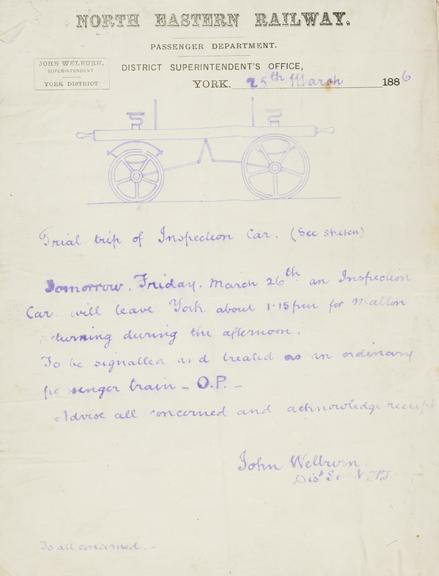 NORTH EASTERN RAILWAY.
PASSENGER DEPARTMENT.
JOHN WELBURN,
SUPERINTENDENT
YORK DISTRICT
DISTRICT SUPERINTENDENT'S OFFICE,
YORK. 25th March 1886
Trial trip of Inspection Car. (See sketch)
Tomorrow, Friday, March 26th an Inspection
Car will leave York about 1.15 pm for Malton
turning during the afternoon.
To be signalled and treated as an ordinary
passenger train - O.P. -
Advise all concerned and acknowledge receipt
John Welburn
Dist
To all concerned.